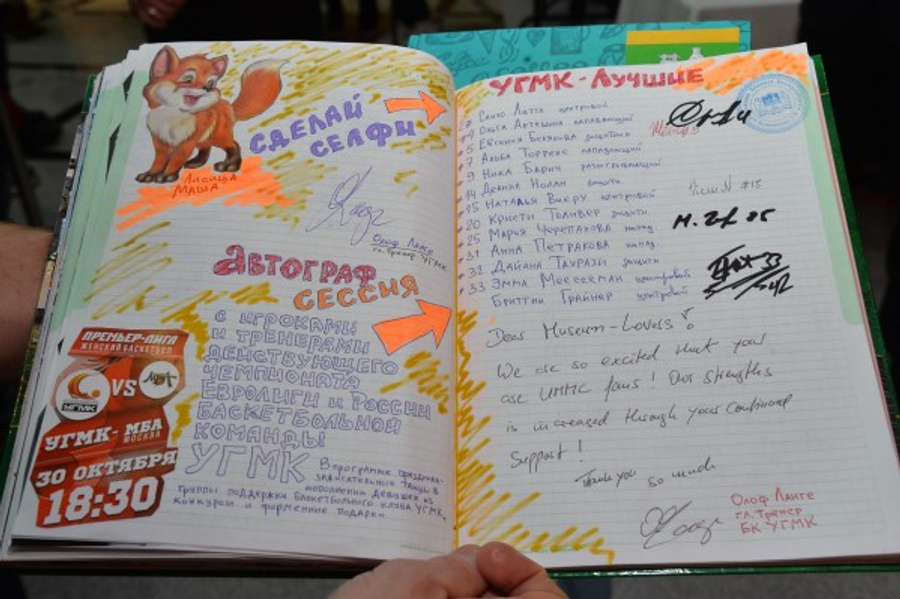 СДЕЛАЙ
СЕЛФИ
Лисица
Маша
Олоф Ланге
гл. тренер УГМК
АВТОГРАФ
СЕССИЯ
с игроками
и тренерами
действующего
чемпионата
Евролиги и России
баскетбольной
команды
УГМК
В программе праздника
зажигательные танцы в
исполнении девушек из
группы поддержки баскетбольного клуба УГМК,
конкурсы и фирменные подарки.
ПРЕМЬЕР-ЛИГА
ЖЕНСКИЙ БАСКЕТБОЛ
VS
УГМК
УГМК - МБА
МОСКВА
30 ОКТЯБРЯ
18:30
УГМК - ЛУЧШИЕ
Санчо Литтл центровой
Ольга Артешина нападающий
5 Евгения Белякова защитник
7 Альба Торренс нападающий
9 Ника Барич разыгрывающий
14 Деанна Нолан защитн
15 Наталья Виеру центровой
20 Кристи Толивер защитн
25 Мария Черепанова напад.
31 Анна Петракова напад.
32 Дайана Таурази защитн
33 Эмма Мессеман центровой
Бриттни Грайнер центровой
#15
25
33
Dear Museum-Lovers!
We are so excited that you
are UMMC fans! Our strengths
is increased through your continued
support!
Thank you
so much
Олоф Ланге
гл. тренер
БК УГМК